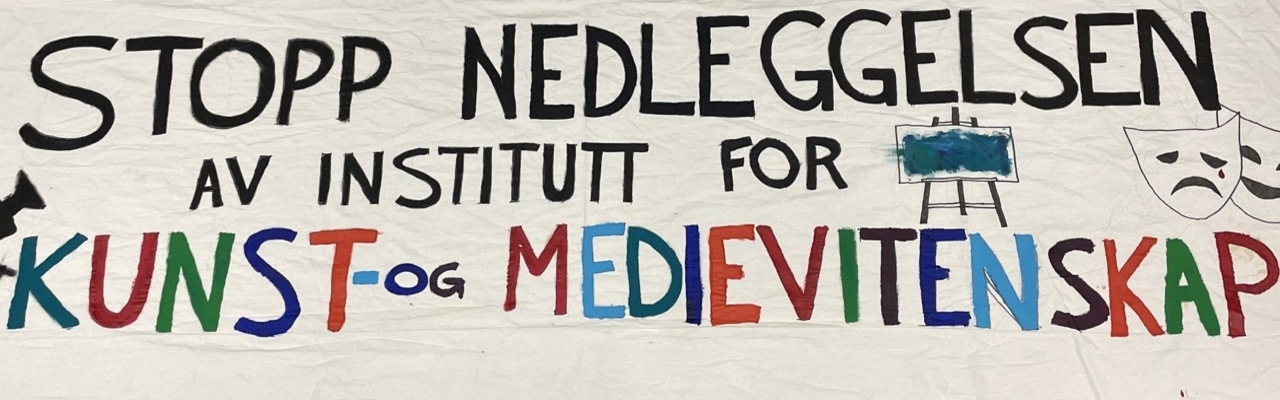 STOPP NEDLEGGELSEN
AV INSTITUTT FOR
KUNST-OG MEDIEVITENSKAP